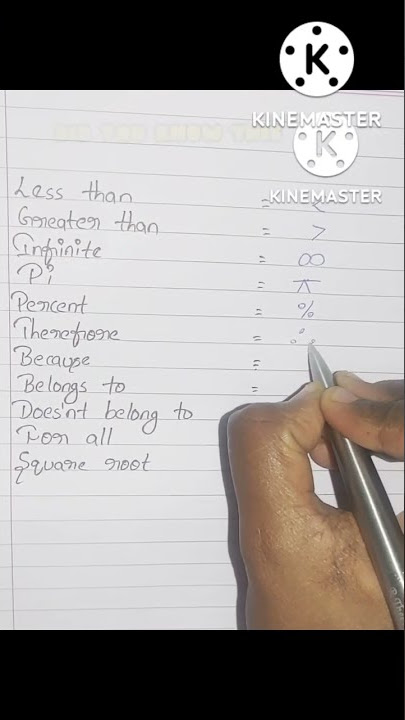 K
KINEMASTER
K
KINEMASTER
Less than = <
Greater than = >
Infinite = ∞
Pi = π
Percent = %
Therefore = ∴
Because =
Belongs to =
Does'nt belong to
For all
Square root